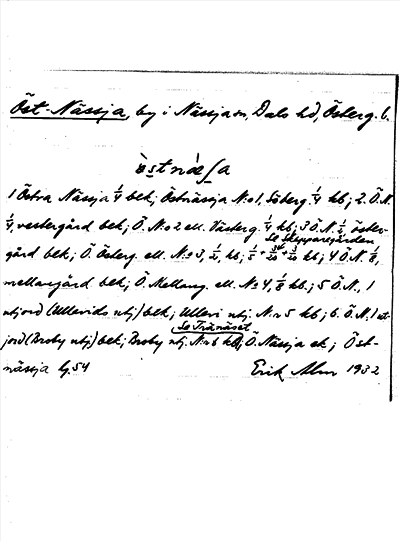 Öst-Nässja, by i Nässja sn, Dals hd, Österg. l.
1 Östra Nässja 1/4 bek; Östnässja No 1, Söderg. 1/4 kb; 2. Ö. N.
1/4, vestergård bek; Ö. No 2 ell. Västerg. 1/4 kb; 3 Ö. N. 1/2, öster-
Se Skepparegården
gård bek; Ö. Österg. ell. No 3, 1/2, kb; kb; 4 Ö. N. 1/8,
mellangård bek; Ö. Mellang. ell. No 4, 1/8 kb.; 5 Ö. N., 1
utjord (Ullevids utj) bek; Ullevi utj. No 5 kb; 6. Ö. N. 1 ut-
Se Tränäset
jord (Broby utj) bek; Broby utj. No 6 kb; Ö. Nässja ek; Öst-
nässja lj. 54 Erik Alm 1932